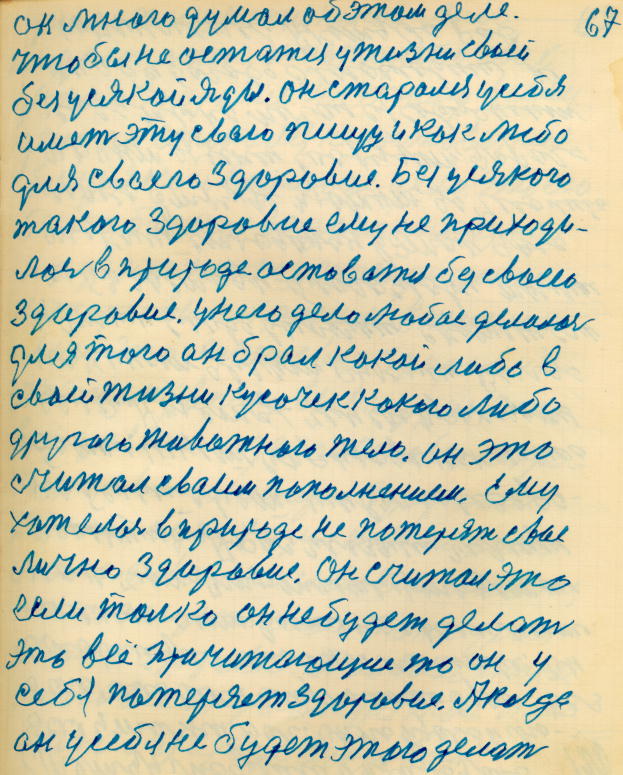 он много думал об этом деле. 67
чтобы не остатся у жизни своей
без усякой яды. он старался у себя
имет эту сваю пищу и как либо
для своего здоровие. Без усякого
такого здоровие ему не приходи-
лось в природе оставатся без своего
здоровие. у него дело любое делалось
для того он брал какой либо в
своей жизни кусочек какого либо
другого живатного тело. он это
считал сваим пополнением. Ему
хотелось в природе не потерят свое
лично здоровие. Он считал это
если толко он не будет делат
это всё причитающие то он у
себя потеряет здоровие. А когда
он у себя не будет этого делат